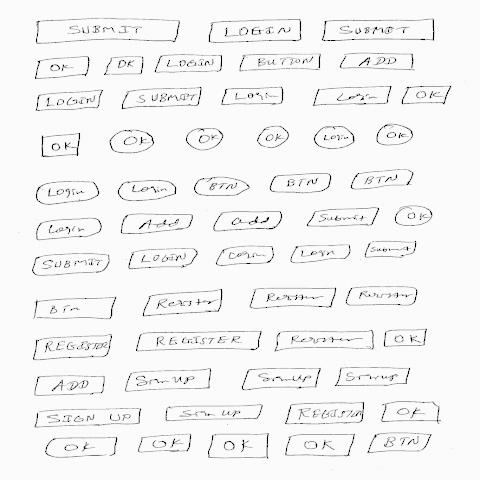 SUBMIT LOGIN SUBMIT
OK OK LOGIN BUTTON ADD
LOGIN SUBMIT Login Login OK
OK OK OK OK Login OK
Login Login BTN BTN BTN
Login Add add Submit OK
SUBMIT LOGIN Login Login Submit
Btn Register Register Register
REGISTER REGISTER Register OK
ADD SIGNUP SIGNUP Signup
SIGN UP SIGN UP REGISTER OK
OK OK OK OK BTN